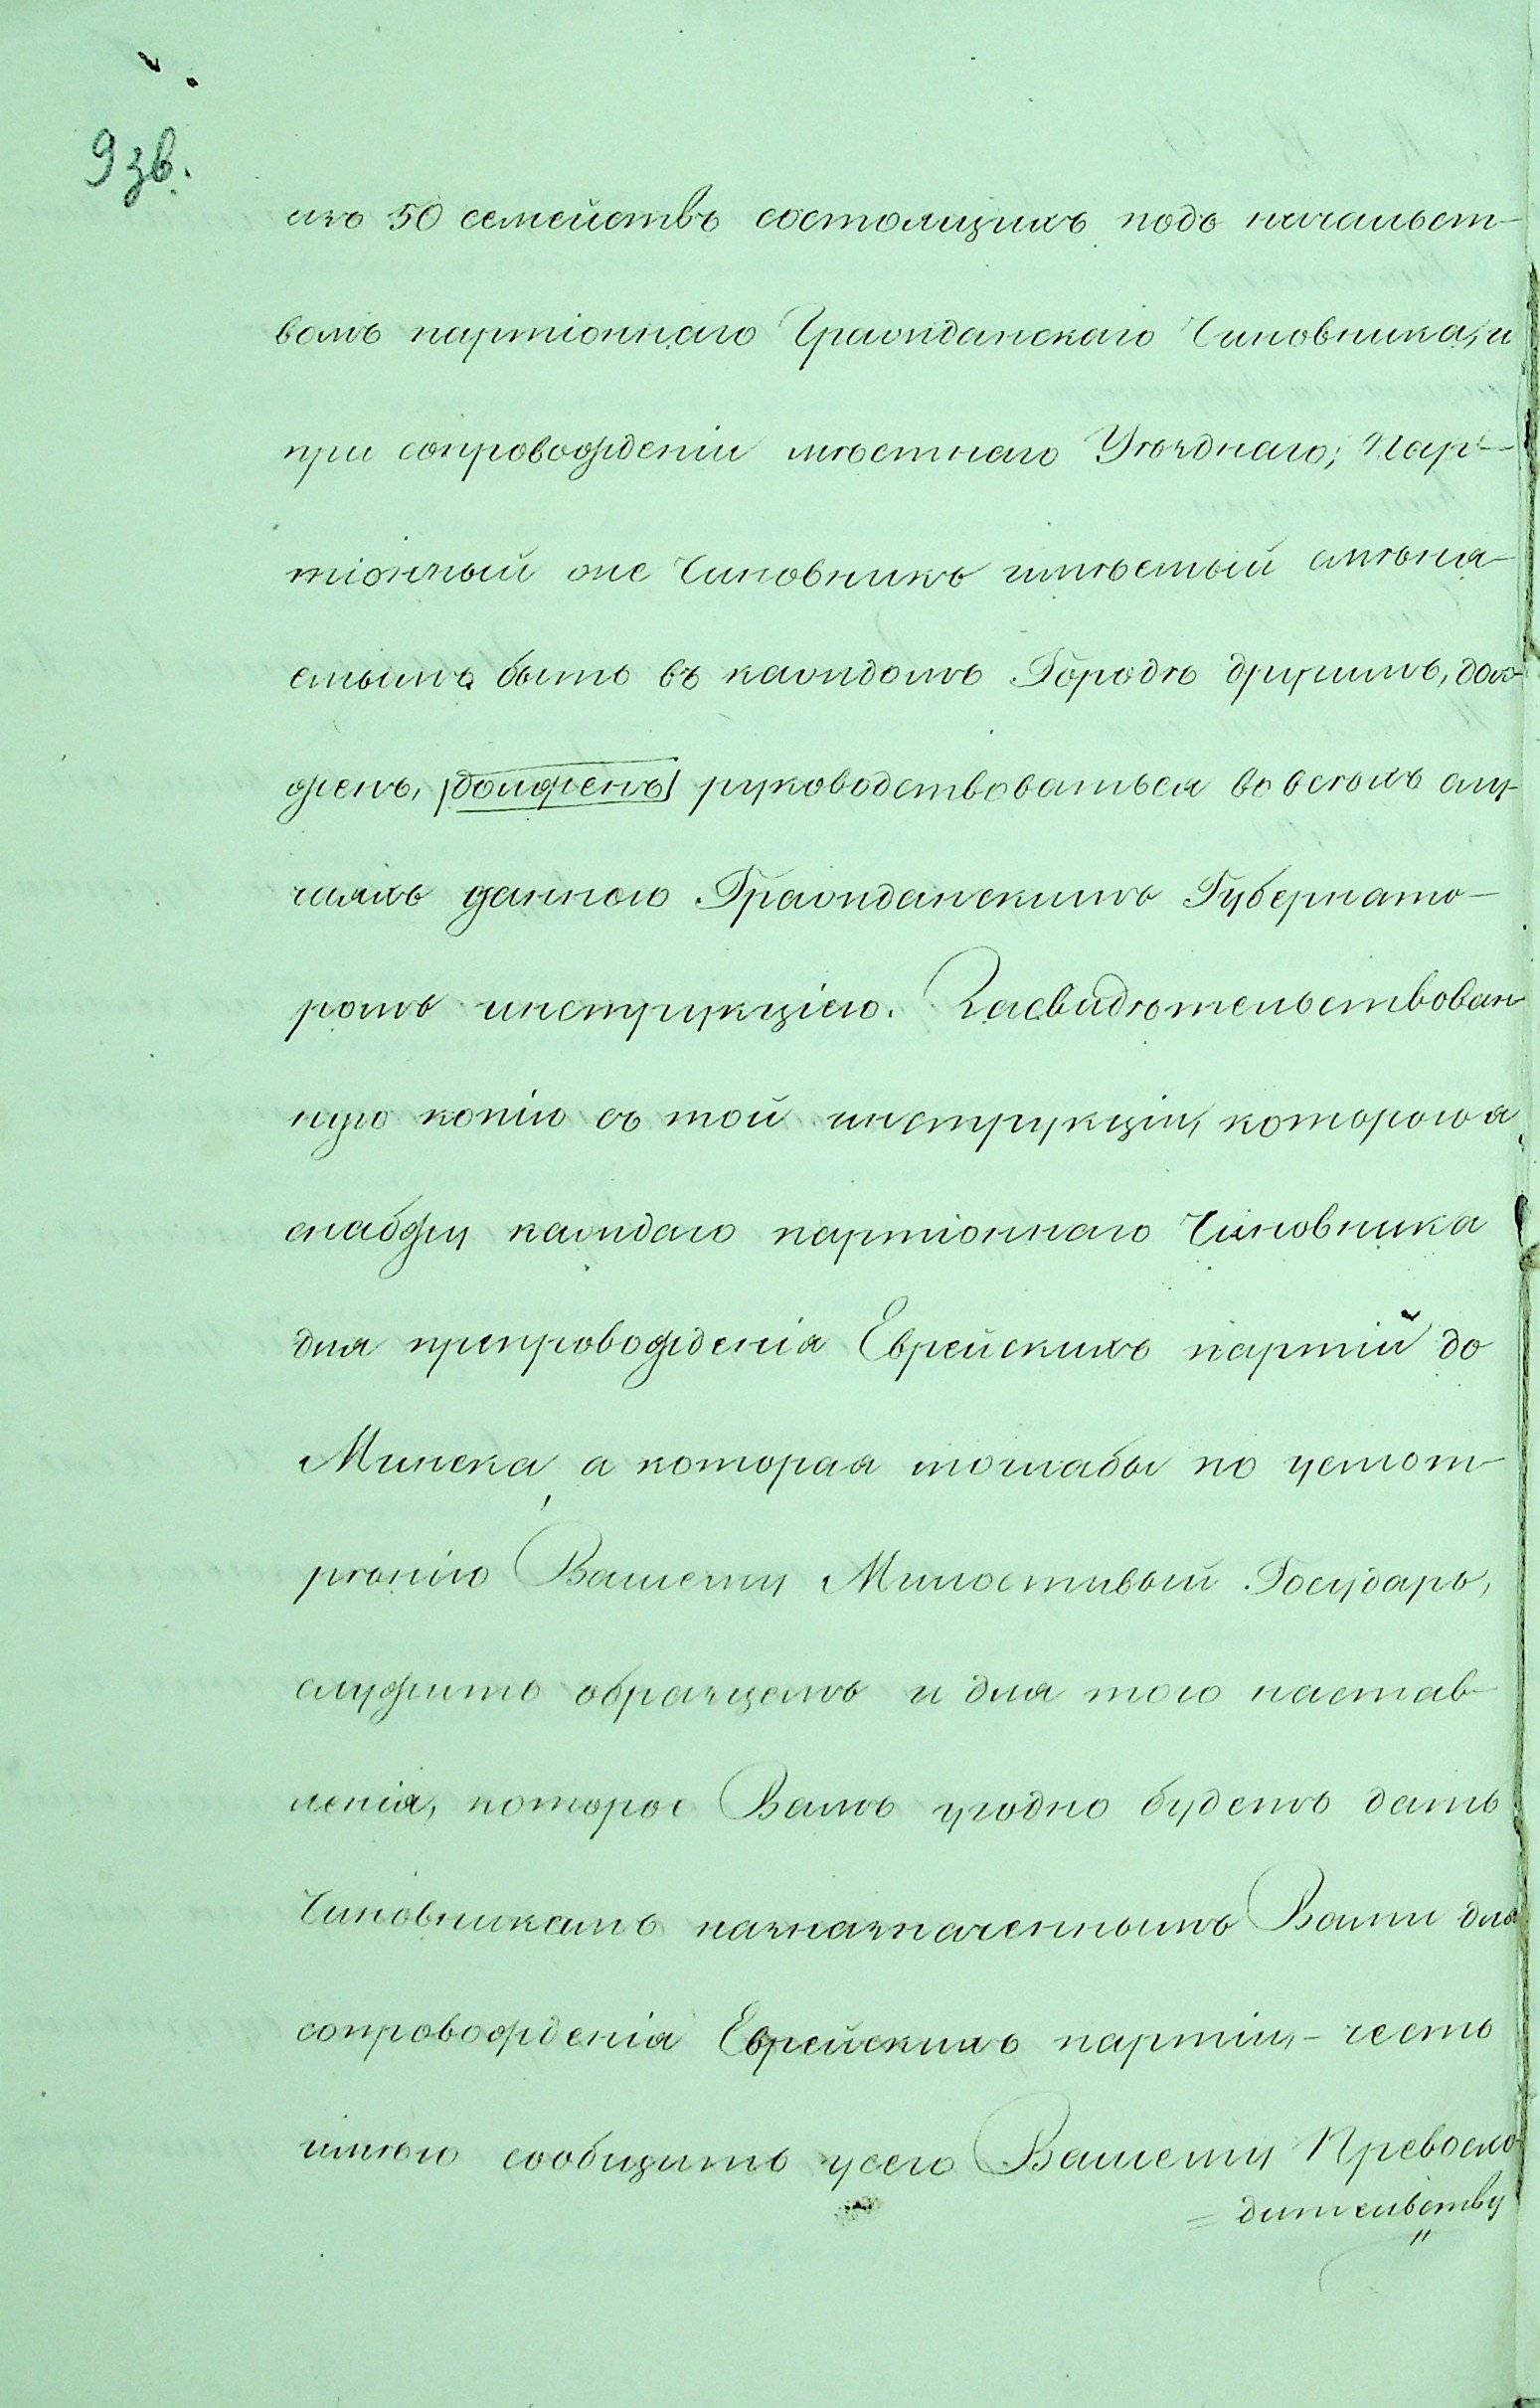 9 зв.
изъ 50 семействъ состоящихъ подъ начальст-
вомъ партіоннаго Гражданскаго Чиновника, и
при сопровожденіи мѣстнаго Уѣзднаго; Пар-
тіонный же Чиновникъ имѣемый смѣня-
емымъ быть въ каждомъ Городѣ другимъ, дол-
женъ, долженъ руководствоваться во всѣхъ слу-
чаяхъ данною Гражданскимъ Губернато-
ромъ инструкціею. Засвидѣтельствован
ную копію съ той инструкціи, которою я
снабжу каждаго партіоннаго Чиновника
для препровожденія Еврейскихъ партій до
Минска, а которая моглабы по усмот-
рѣнію Вашему Милостивый Государь,
служить образцемъ и для того настав-
ленія, которое Вамъ угодно будетъ дать
Чиновникамъ назназначеннымъ Вами для
сопровожденія Еврейскихъ партіи, - честь
имѣю сообщить у сего Вашему Превосхо-
= дительству